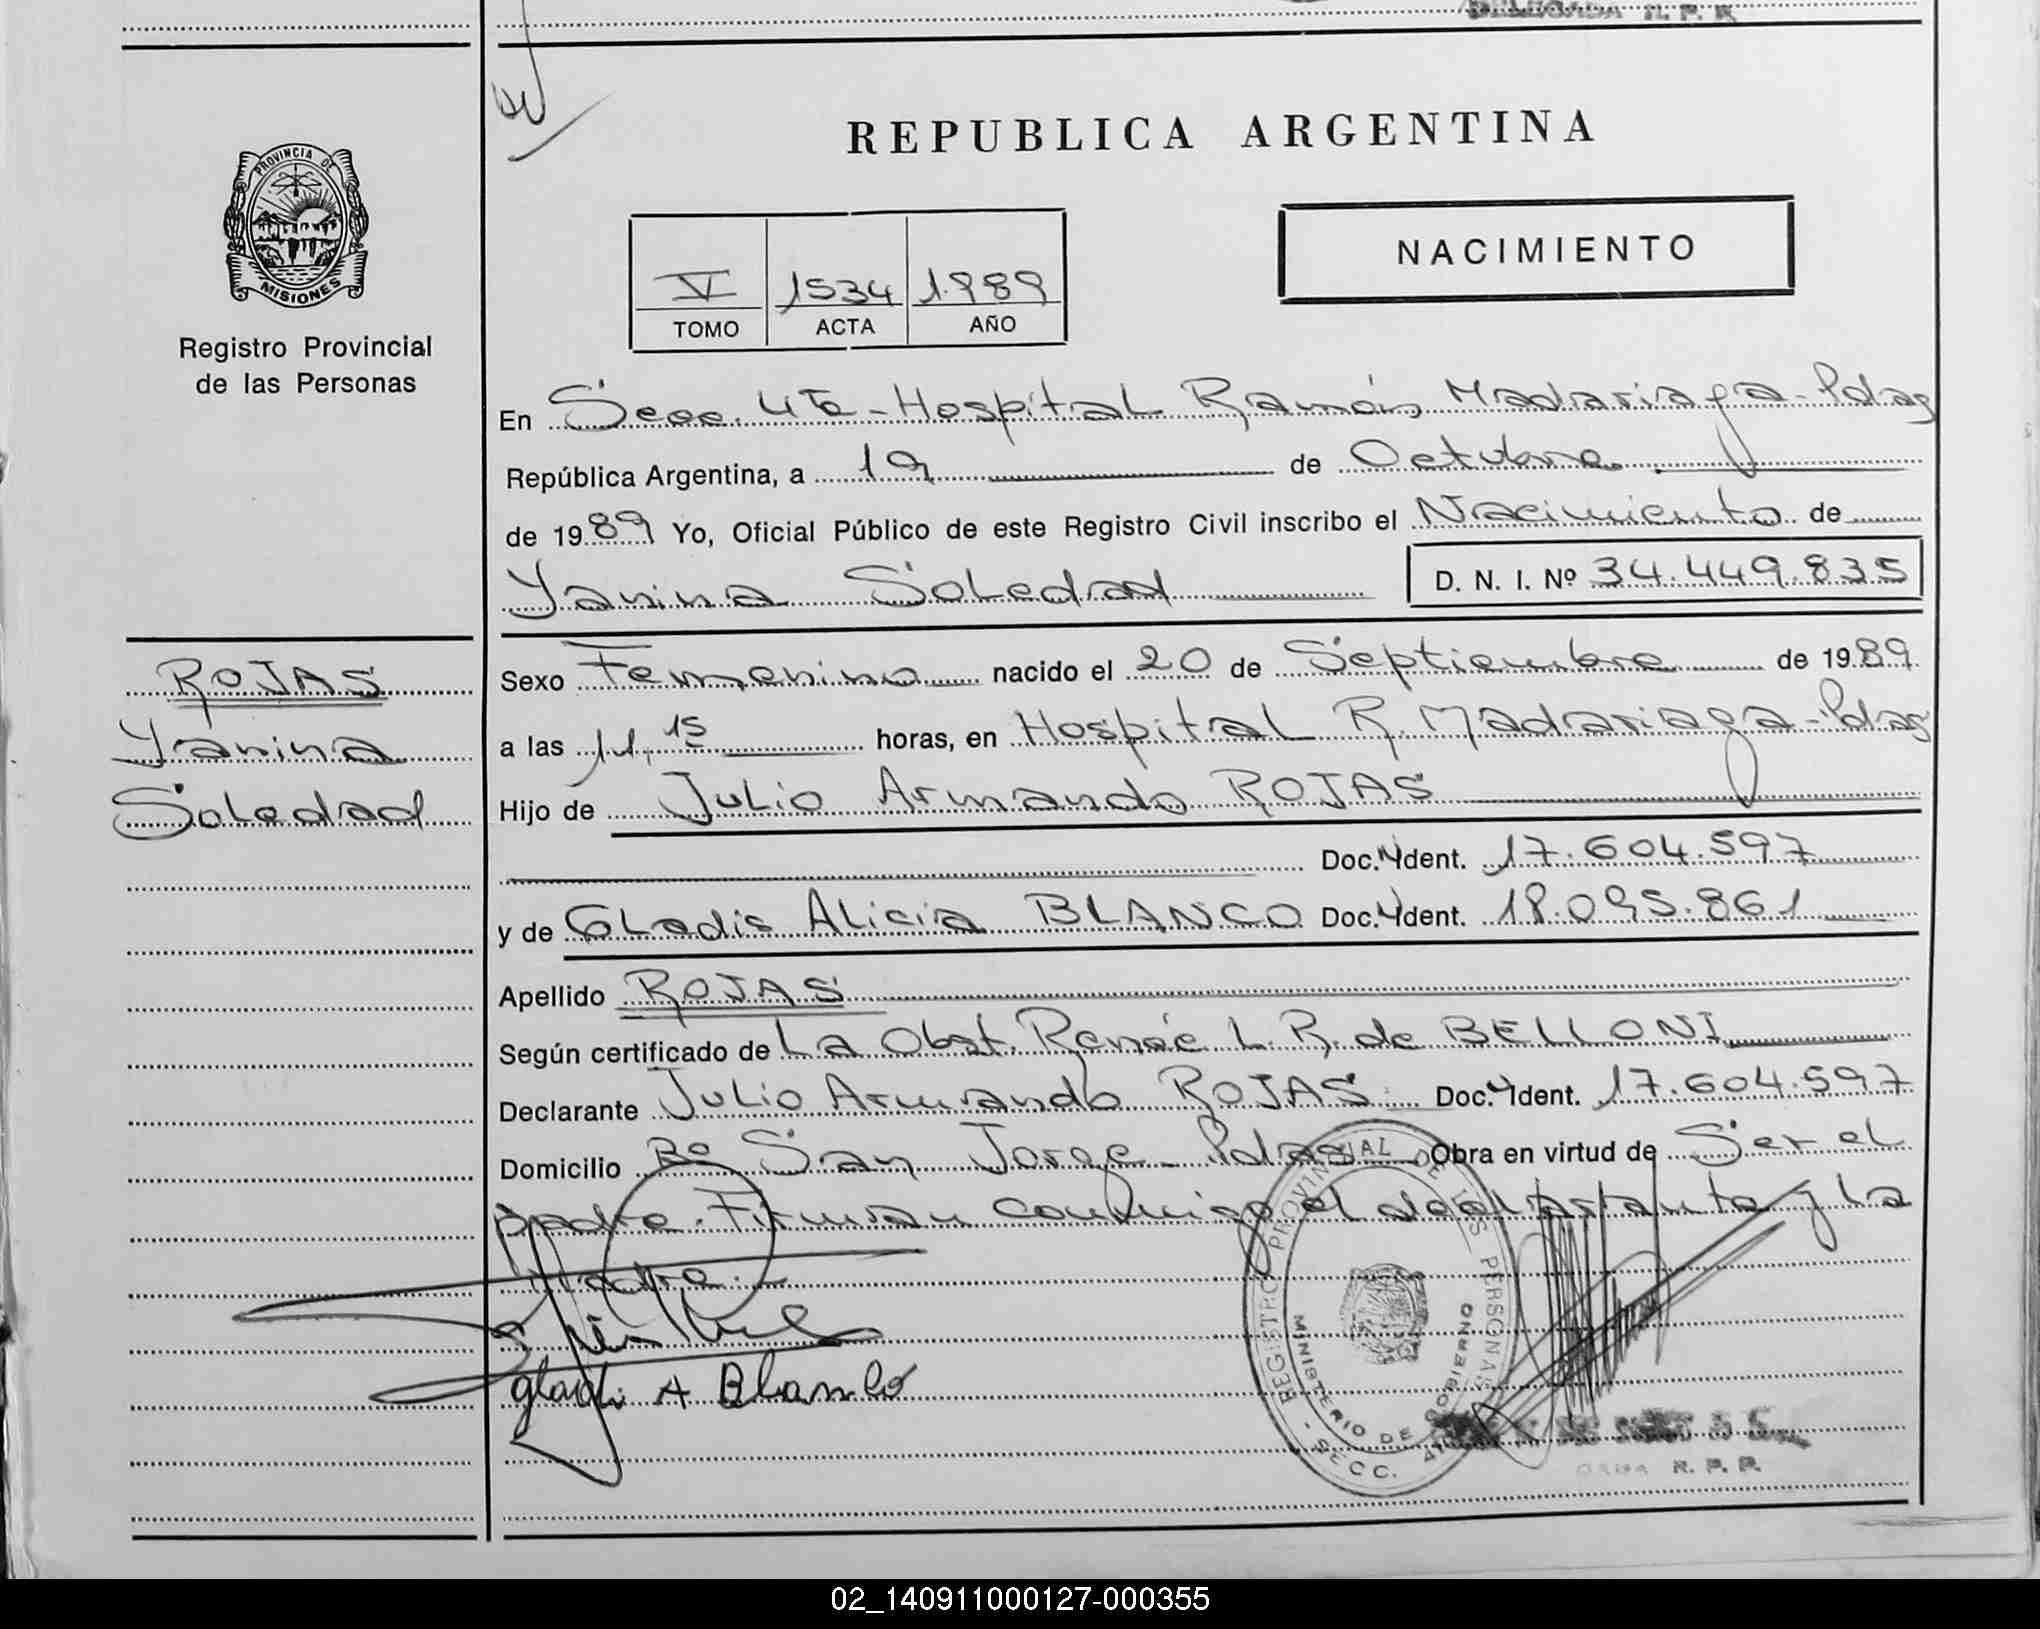 DELEGADA R. P. P.
REPUBLICA ARGENTINA
PROVINCIA DE
MISIONES
Registro Provincial
de las Personas
NACIMIENTO
V 1534 1989
TOMO ACTA AÑO
En Secc. 4ta - Hospital Ramón Madariaga - Pdas
República Argentina, a 19 de Octubre
de 1989 Yo, Oficial Público de este Registro Civil inscribo el Nacimiento de
Yanina Soledad D. N. I. Nº 34.449.835
ROJAS
Yanina
Soledad
Sexo Femenino nacido el 20 de Septiembre de 1989
a las 11,15 horas, en Hospital R. Madariaga - Pdas
Hijo de Julio Armando ROJAS
Doc. Ident. 17.604.597
y de Gladis Alicia BLANCO Doc. Ident. 18.095.861
Apellido ROJAS
Según certificado de La Obst. Renée L. R. de BELLONI
Declarante Julio Armando ROJAS Doc. Ident. 17.604.597
Domicilio Bº San Jorge - Pdas Obra en virtud de Ser el
padre. Firman conmigo el declarante y la
madre.-
gladis A Blanco
REGISTRO PROVINCIAL DE LAS PERSONAS
MINISTERIO DE GOBIERNO
- SECC. 4
R. P. P.
02_140911000127-000355